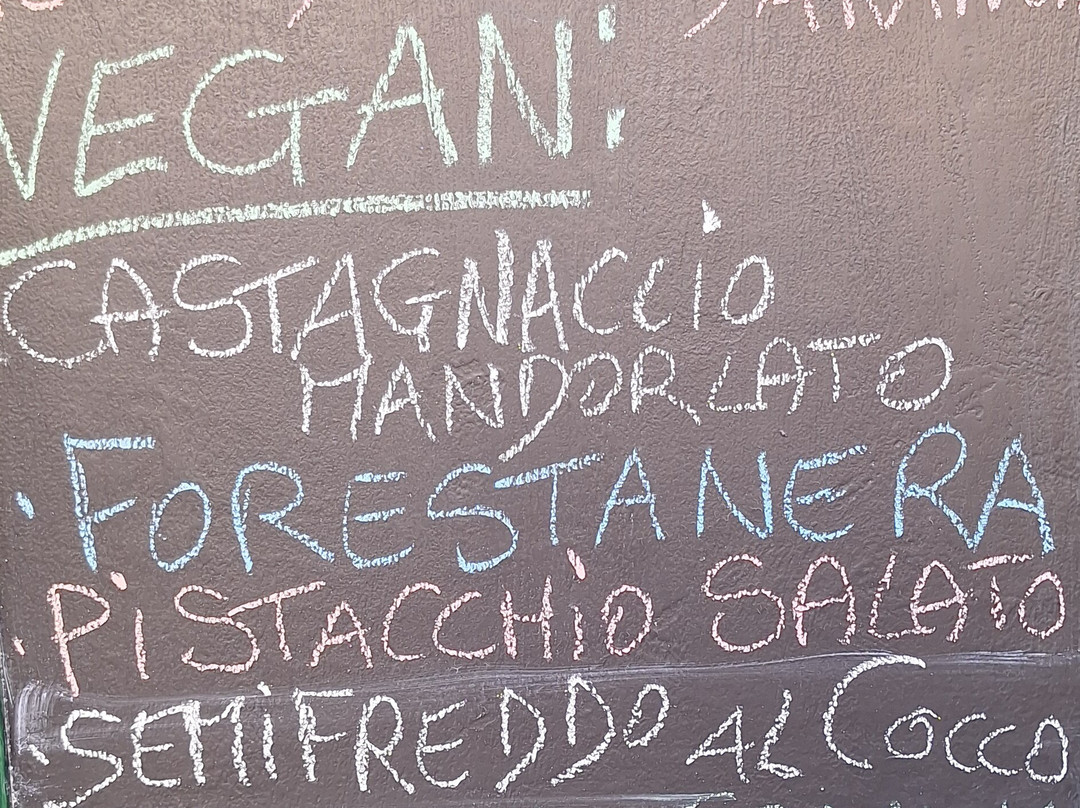 VEGAN:
CASTAGNACCIO
MANDORLATO
• FORESTA NERA
• PISTACCHIO SALATO
• SEMIFREDDO AL COCCO